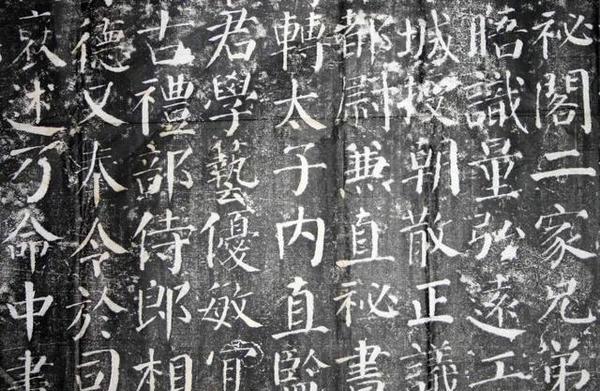 祕閣二家兄弟
晤識量弘遠工
城授朝散正議
都尉兼直祕書
轉太子内直監
君學藝優敏宜
古禮部侍郎相
德又奉令於司
哀述乃命中書